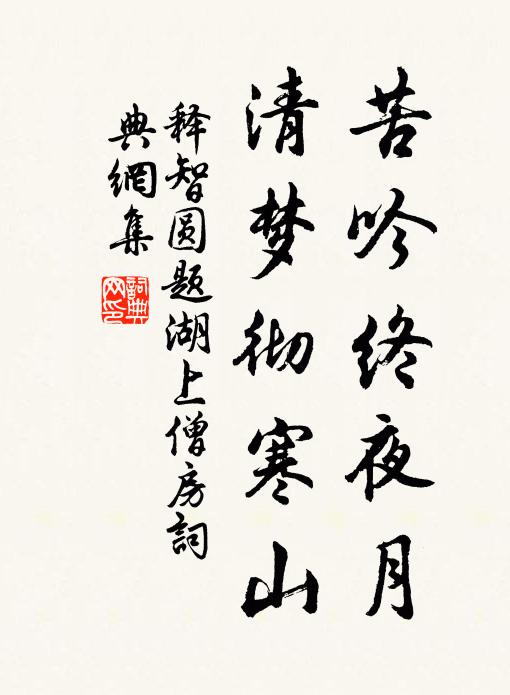 苦吟终夜月
清梦彻寒山
释智圆题湖上僧房詞
典網集
詞典网印